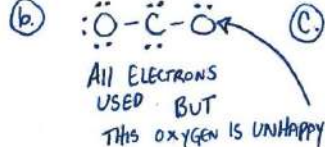 b. :O-C-O C.
All ELECTRONS
USED BUT
THIS OXYGEN IS UNHAPPY